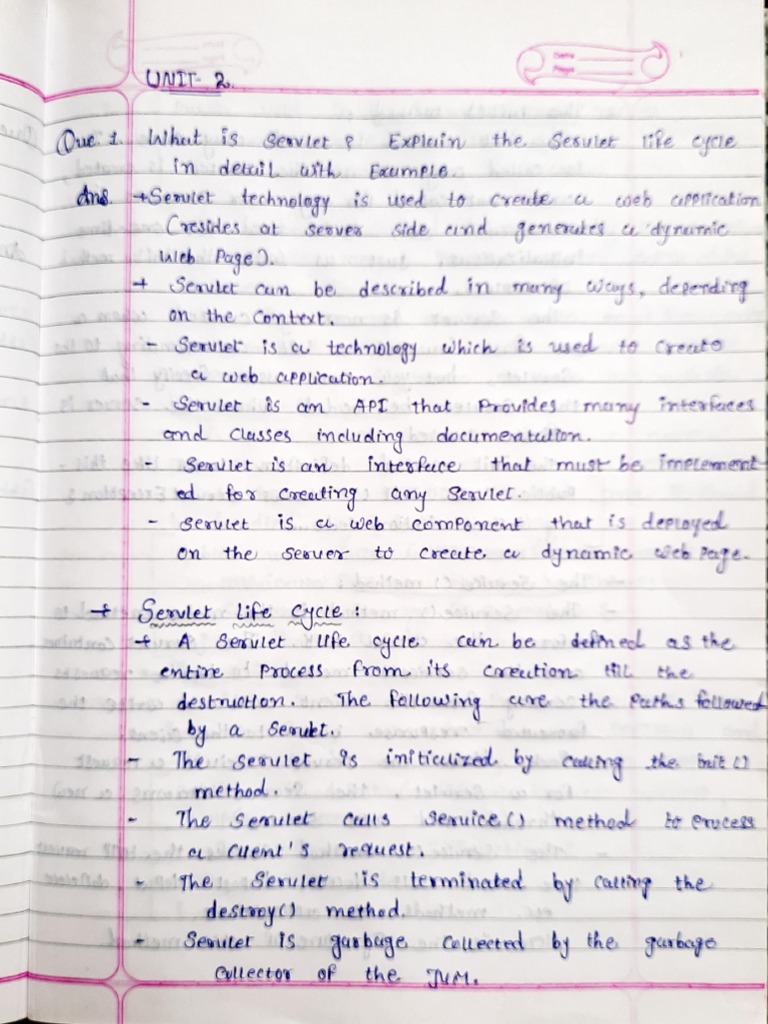 UNIT 2.
Que. 1. What is Servlet ? Explain the Servlet life cycle
in detail with Example.
Ans. → Servlet technology is used to create a web application
(resides at server side and generates a dynamic
Web Page).
→ Servlet can be described in many ways, depending
on the Context.
- Servlet is a technology which is used to create
a web application.
- Servlet is an API that Provides many interfaces
and Classes including documentation.
- Servlet is an interface that must be implement-
ed for creating any Servlet.
- Servlet is a web component that is deployed
on the server to create a dynamic web page.
→ Servlet Life Cycle :
→ A Servlet life cycle can be defined as the
entire Process from its creation till the
destruction. The following are the Paths followed
by a Servlet.
- The Servlet is initialized by calling the init()
method.
- The Servlet calls Service() method to Process
a Client's request.
- The Servlet is terminated by calling the
destroy() method.
- Servlet is garbage Collected by the garbage
Collector of the JVM.